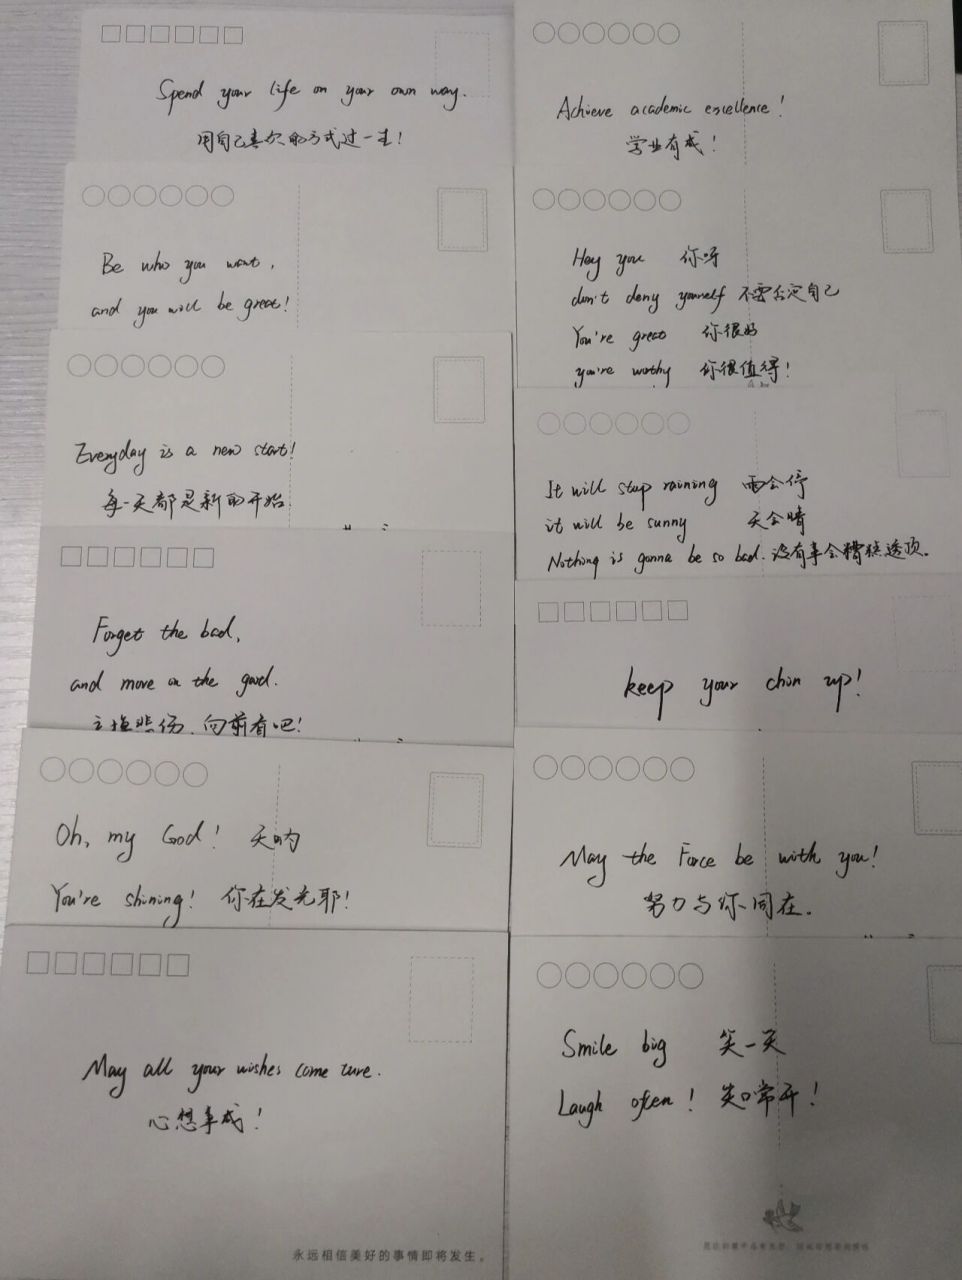 Spend your life on your own way.
用自己喜欢的方式过一生!
Be who you want,
and you will be great!
Everyday is a new start!
每一天都是新的开始.
Forget the bad,
and move on the good.
悲伤,向前看吧!
Oh, my God! 天呐
You're shining! 你在发光耶!
May all your wishes come ture.
心想事成!
永远相信美好的事情即将发生。
Achieve academic excellence!
学业有成!
Hey you 你呀
don't deny yourself 不要否定自己
You're great 你很好
you're worthy 你很值得!
It will stop raining 雨会停
it will be sunny 天会晴
Nothing is gonna be so bad. 没有事会糟糕透顶。
keep your chin up!
May the Force be with you!
努力与你同在.
Smile big 笑一笑
Laugh often! 笑口常开!